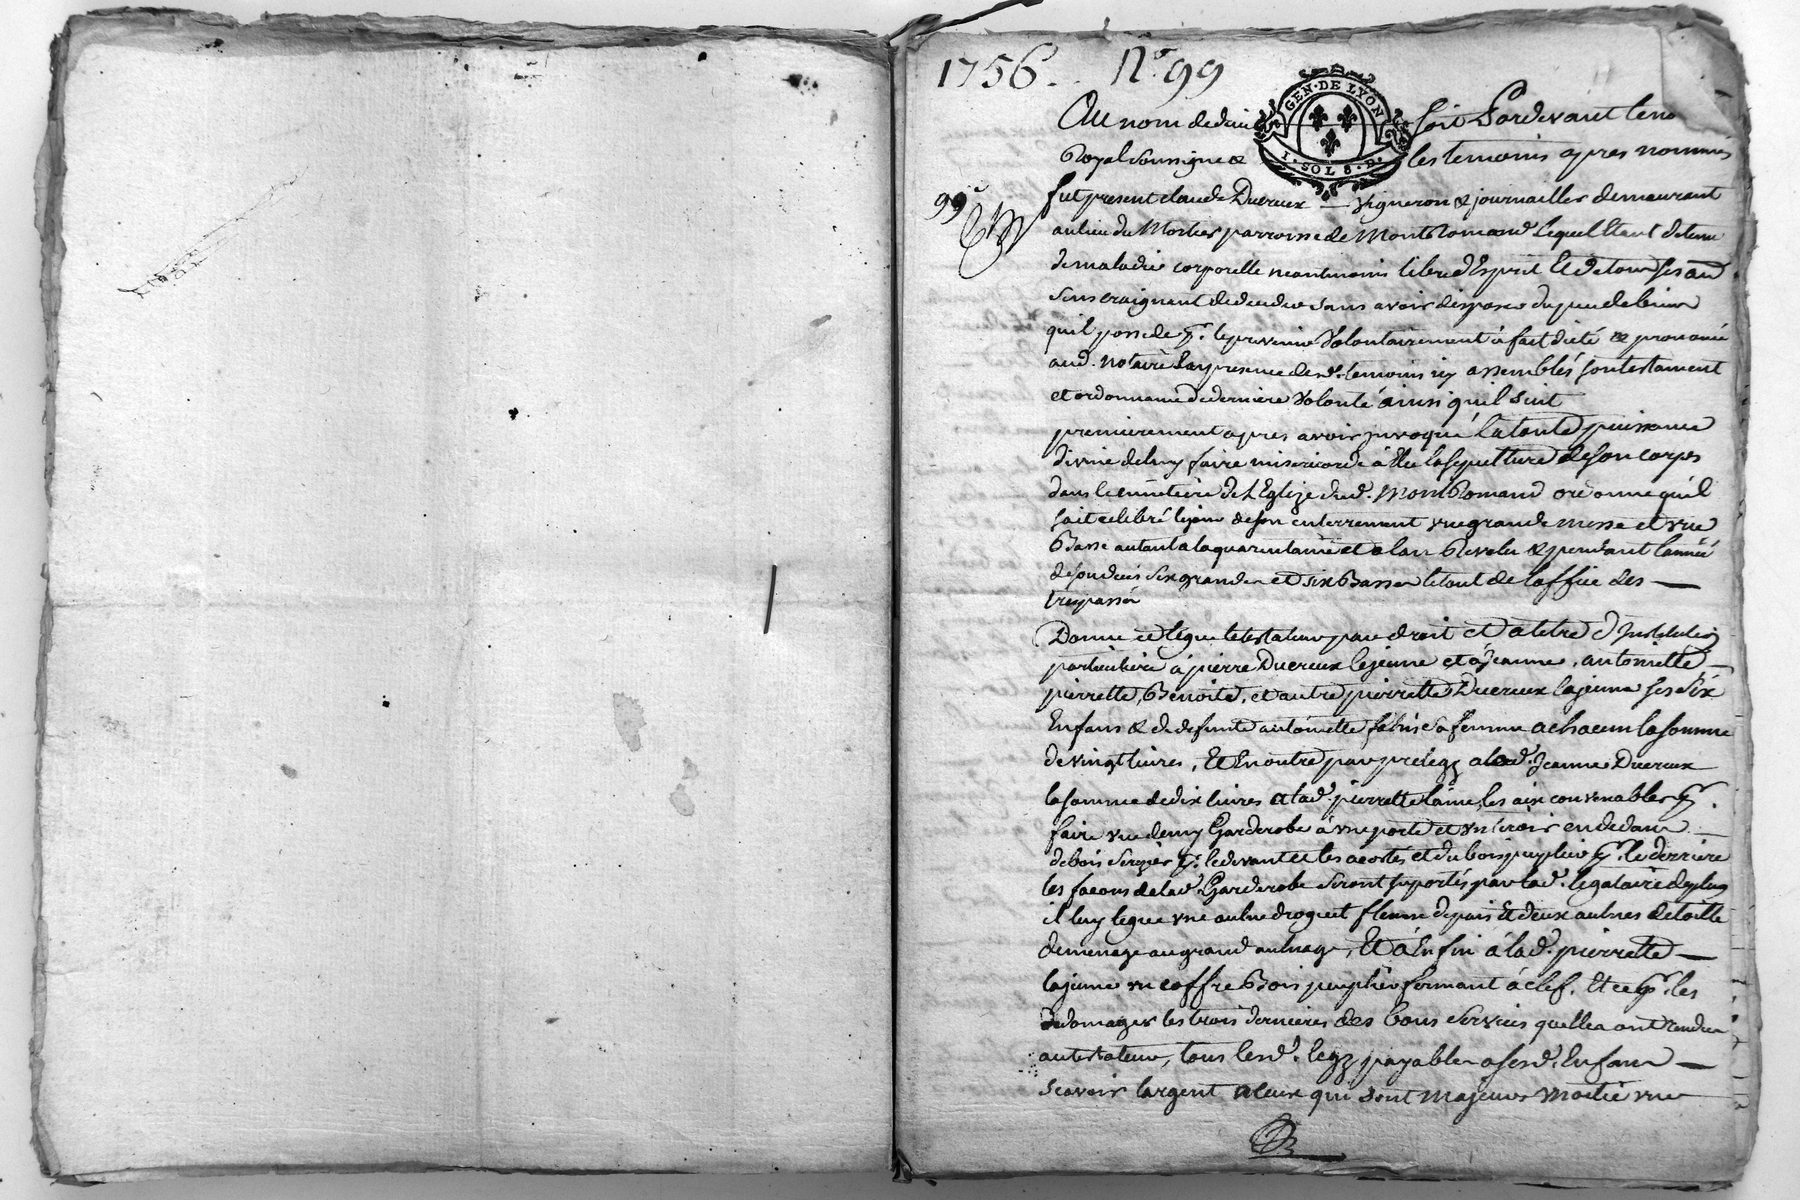 1756. N° 99
GEN. DE LYON
I. SOL 8. D.
Au nom de dieu soit Pardevant le no
Royal soussigné & les temoins apres nommés
99e
fut present claude Ducreux — vigneron & journailler demeurant
au lieu du Mortier parroisse de Montromand lequel Etant detenu
de maladie corporelle neantmoins libre d'Esprit Et de tous ses
sens craignant de deceder sans avoir disposer du peu de biens
qu'il possede pr. le prevenir Volontairement à fait dicté & prononcé
aud. notaire En presence desd. temoins icy assemblés son testament
et ordonnance de derniere Volonté ainsi qu'il suit
premierement apres avoir jnvoqué la toute puissance
divine de luy faire misericorde à Elu la sepulture de son corps
dans le cimetiere de L'Eglize dud. Montromand ordonne qu'il
soit celebré le jour de son enterrement vne grande messe et vne
Basse autant a la quarantaine et a l'an Revolu & pendant l'année
de son deces six grandes et six Basses le tout de l'office des —
trepassés
Donne et legue le testateur par droit et a titre d'Institution
particuliere à pierre Ducreux le jeune et à Jeanne, antoinette —
pierrette, Benoite, et autre pierrette Ducreux la jeune ses six
Enfans & de defunte antoinette sa femme a chacun la somme
de vingt livres, Et En outre par prelegz a lad. Jeanne Ducreux
la somme de dix livres a lad. pierrette l'ainé, les aix convenables pr.
faire vne demy Garderobe à vne porte et vn tiroir en dedans —
de bois serizier pr. le devant et les acostés et du bois peuplier pr. le derriere
les facons de lad. Garderobe seront suportés par lad. legataire de plus
il luy legue vne aulne droguet fleuret depois Et deux aulnes de toille
de menage au grand aulnage, Et à Enfin à lad. pierrette —
la jeune vn coffre Bois peuplier fermant à clef. Et ce pr. les
dedomager les trois dernieres des bons services qu'elles ont rendus
au testateur, tous lesd. legz payables a sesd. Enfans —
scavoir l'argent a ceux qui sont majeurs moitié vne